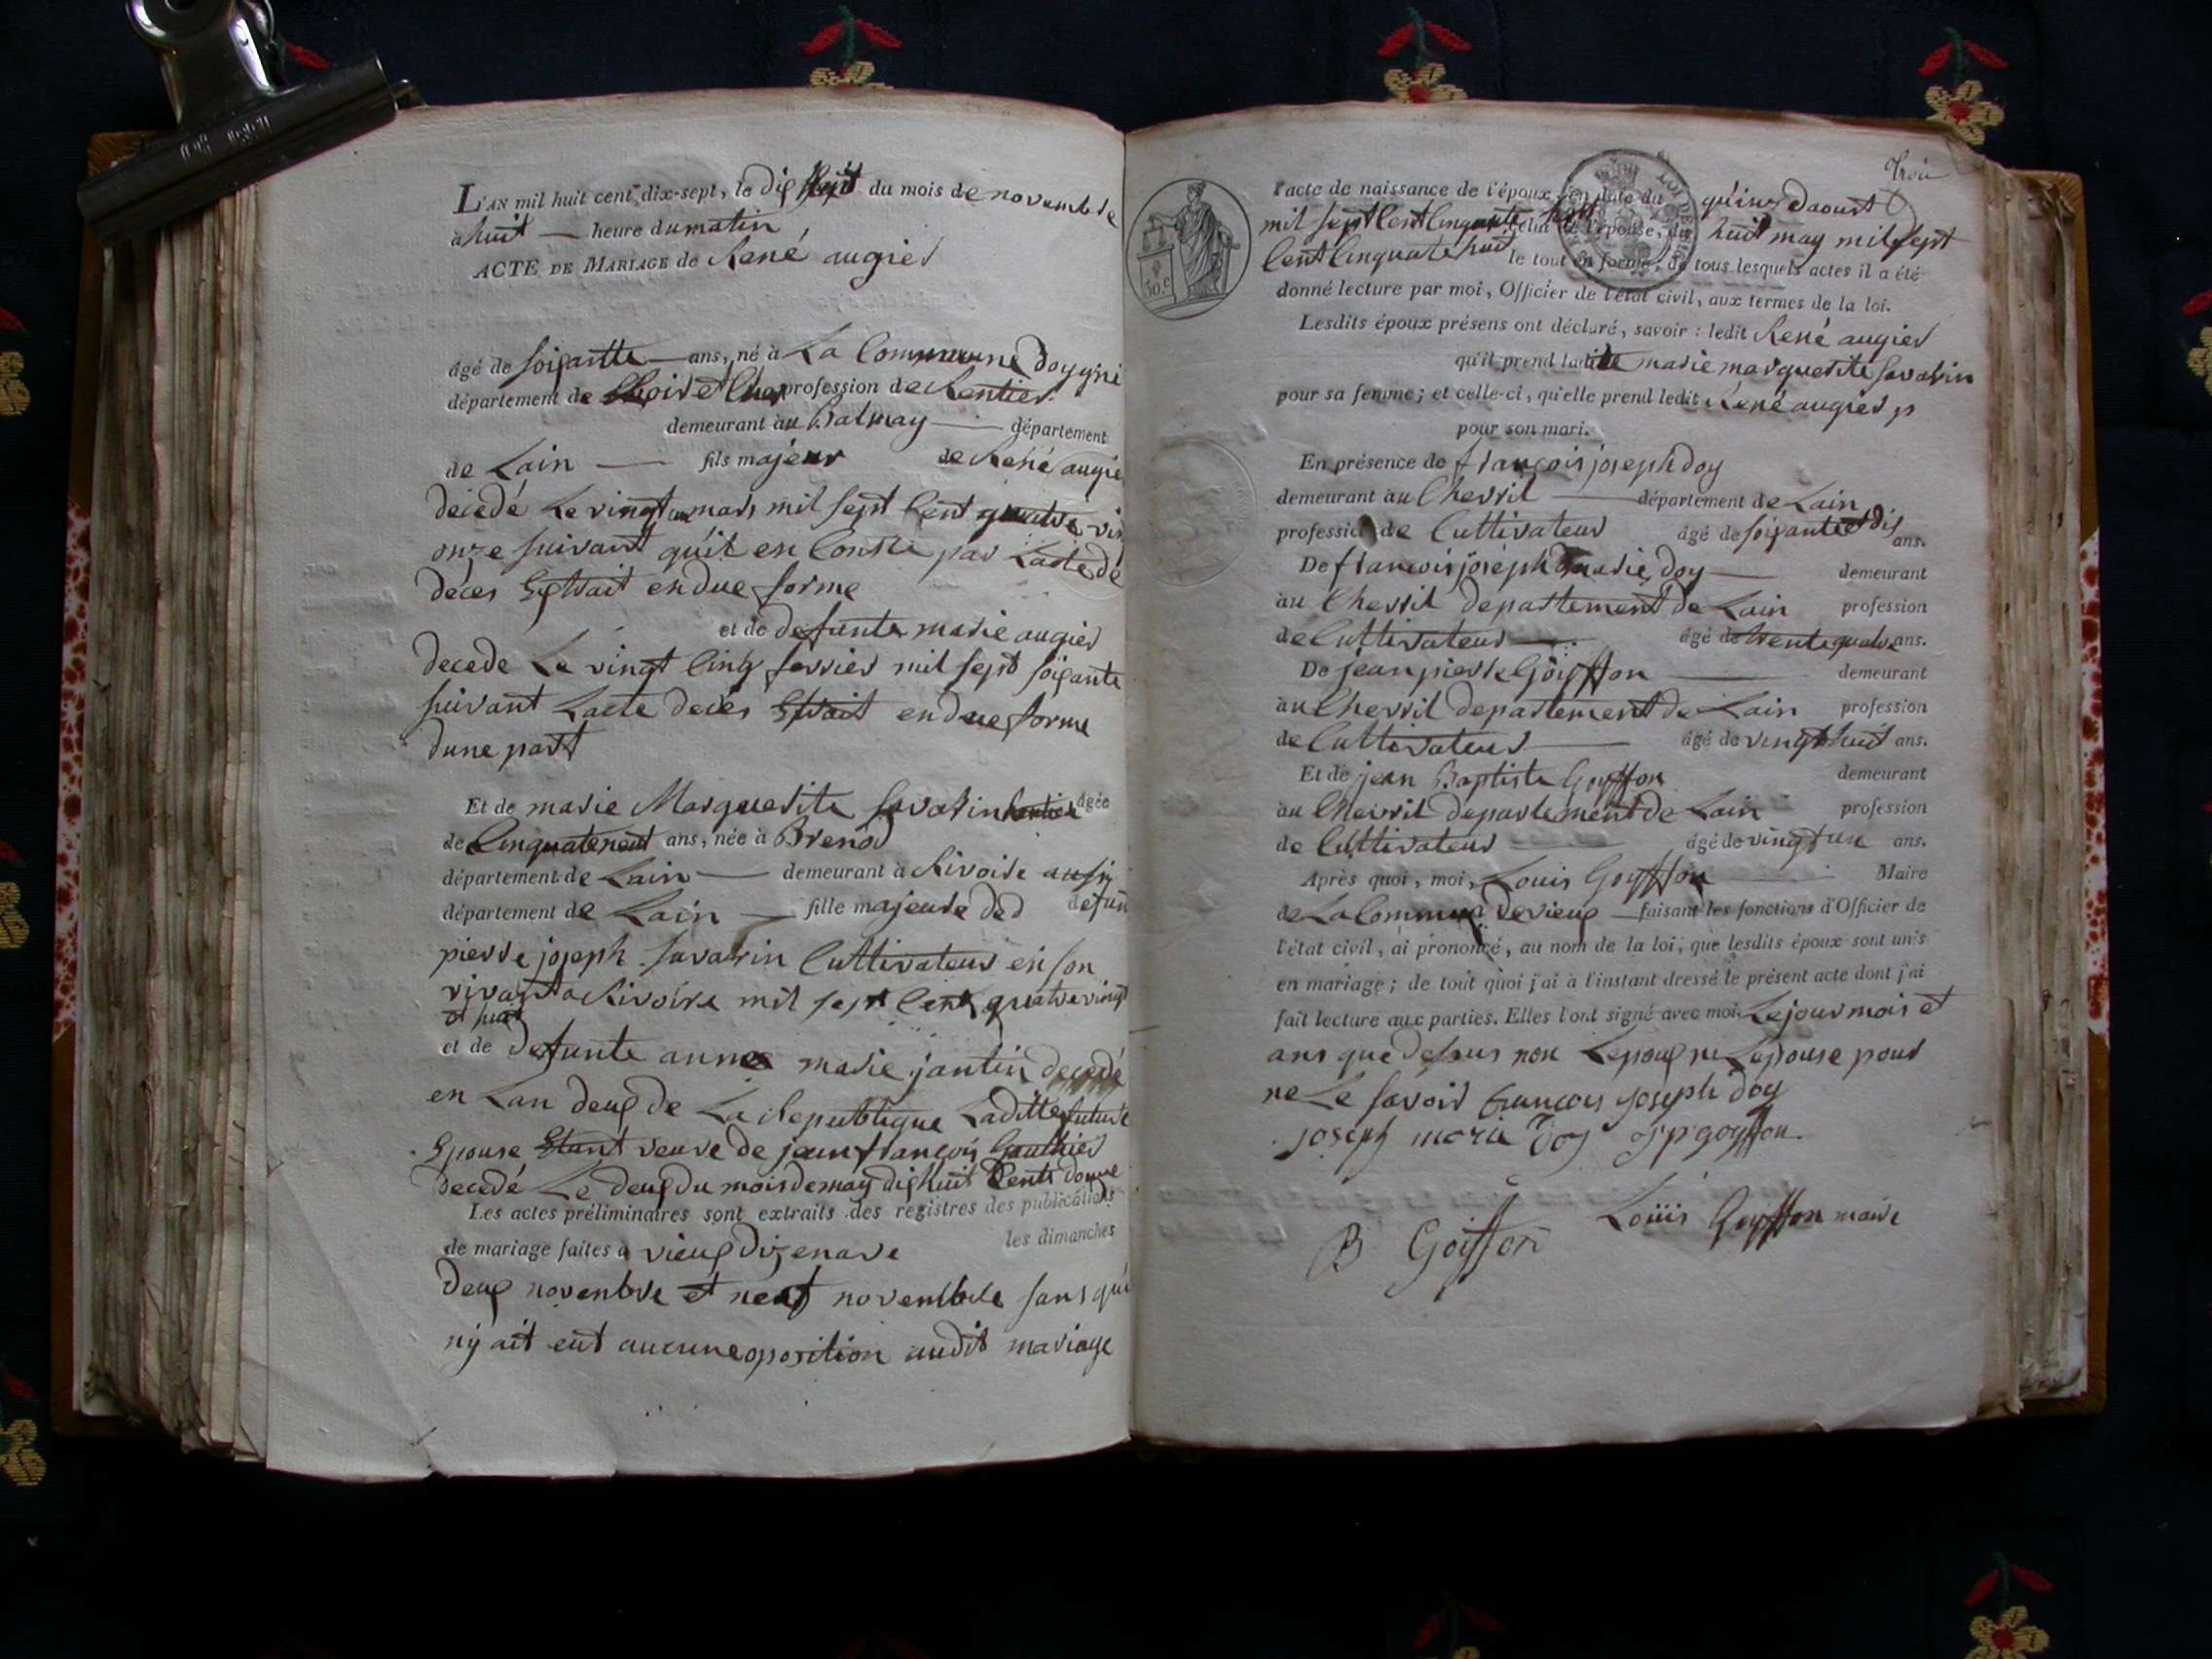 L'AN mil huit cent dix-sept, le dix huit du mois de novembre
à huit heure du matin
ACTE DE MARIAGE de René augier
âgé de soixantte ans, né à La Commune doygni
département de Loire et Cher profession de Rentier
demeurant au Balmay département
de Lain fils majeur de René augie
decedé Le vingt un mars mil sept Cent quatre vin
onze suivant quil en Conste par Lacte de
deces Extrait en due forme
et de defunte marie augier
decede Le vingt Cinq fevrier mil sept soixante
suivant Lacte deces Extrait en due forme
dune part
Et de marie Marguerite savarin âgée
de Cinquateneuf ans, née à Brenod
département de Lain demeurant à Rivoire aussi
département de Lain fille majeure de defun
pierre joseph savarin Cultivateur en son
vivant a Rivoire mil sept Cent quatre vingt
et huit
et de defunte anne marie jantin decedé
en Lan deux de La Republique Laditte future
Epouse Etant veuve de jean françois Gauthier
decedé Le deux du mois de may dix huit Cents douse
Les actes préliminaires sont extraits des registres des publications
de mariage faites à vieux dizenave les dimanches
deux novenbre et neuf novenbre sans qu'i
ny ait eut aucune oposition audit mariage
Trois
50.c
l'acte de naissance de l'époux en date du quinze daoust
mil sept Cent Cinquante sept celui de l'épouse, du huit may mil sept
Cent Cinquate huit le tout en forme, de tous lesquels actes il a été
donné lecture par moi, Officier de l'état civil, aux termes de la loi.
Lesdits époux présens ont déclaré, savoir : ledit René augier
qu'il prend ladite marie marguerite savarin
pour sa femme; et celle-ci, qu'elle prend ledit René augier
pour son mari.
En présence de françois joseph doy
demeurant au Chevril département de Lain
profession de Cultivateur âgé de soixante et dix ans.
De francois joséph marie doy demeurant
au Chevril departement de Lain profession
de Cultivateur âgé de trente quatre ans.
De jean pierre Goyffon demeurant
au Chevril departement de Lain profession
de Cultivateur âgé de vingt huit ans.
Et de jean Baptiste Goyffon demeurant
au Chevril departement de Lain profession
de Cultivateur âgé de vingt un ans.
Après quoi, moi, Louis Goyffon Maire
de La Commune de vieux faisant les fonctions d'Officier de
l'état civil, ai prononcé, au nom de la loi, que lesdits époux sont unis
en mariage; de tout quoi j'ai à l'instant dressé le présent acte dont j'ai
fait lecture aux parties. Elles l'ont signé avec moi Le jour mois et
ans que dessus non Lepoux ni Lepouse pour
ne Le savoir francois joseph doy
joseph marie doy jp goyffon
Loüis Goyffon maire
B Goiffon